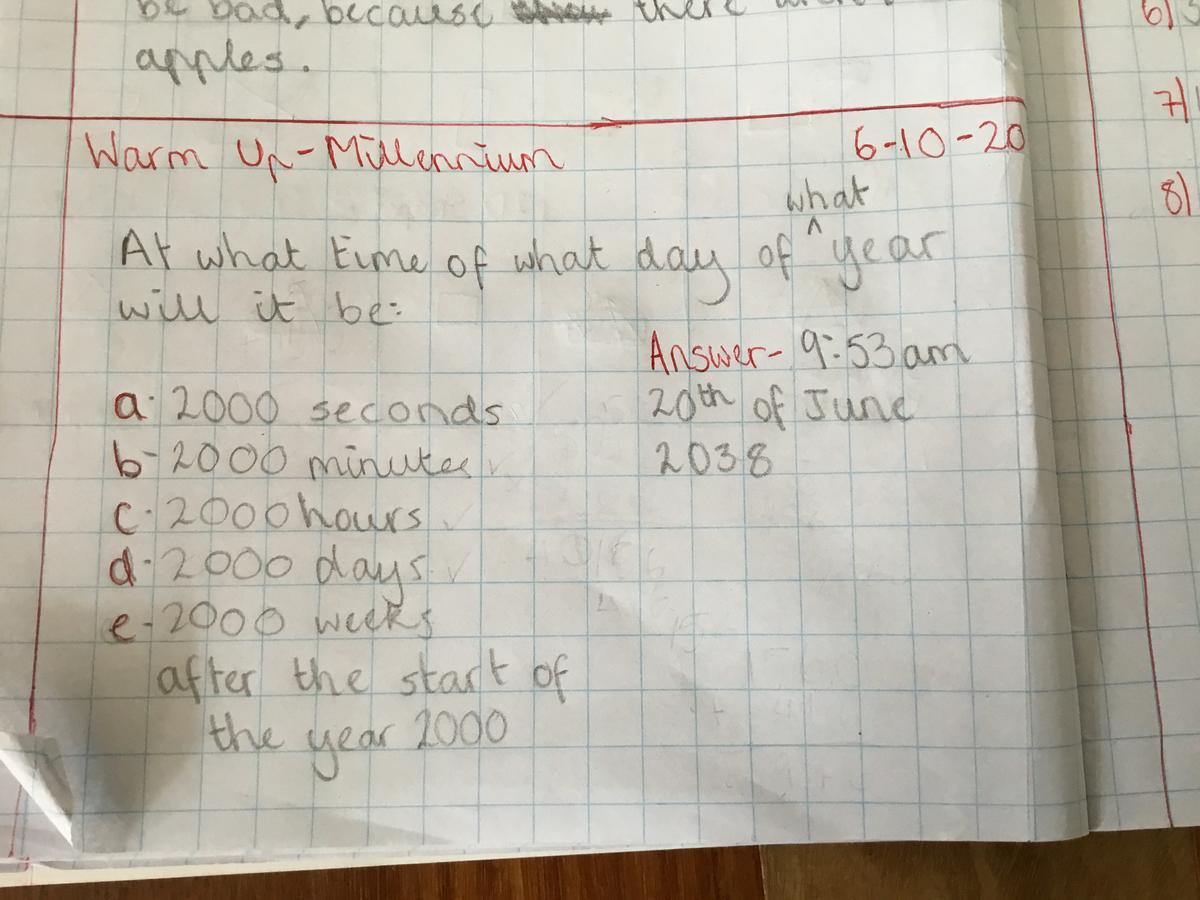 be bad, because there
apples.
Warm Up - Millennium 6-10-20
what
At what time of what day of ^ year
will it be:
Answer- 9:53am
a. 2000 seconds 20th of June
b- 2000 minutes 2038
c. 2000 hours
d. 2000 days
e- 2000 weeks
after the start of
the year 2000
6)
7)
8)